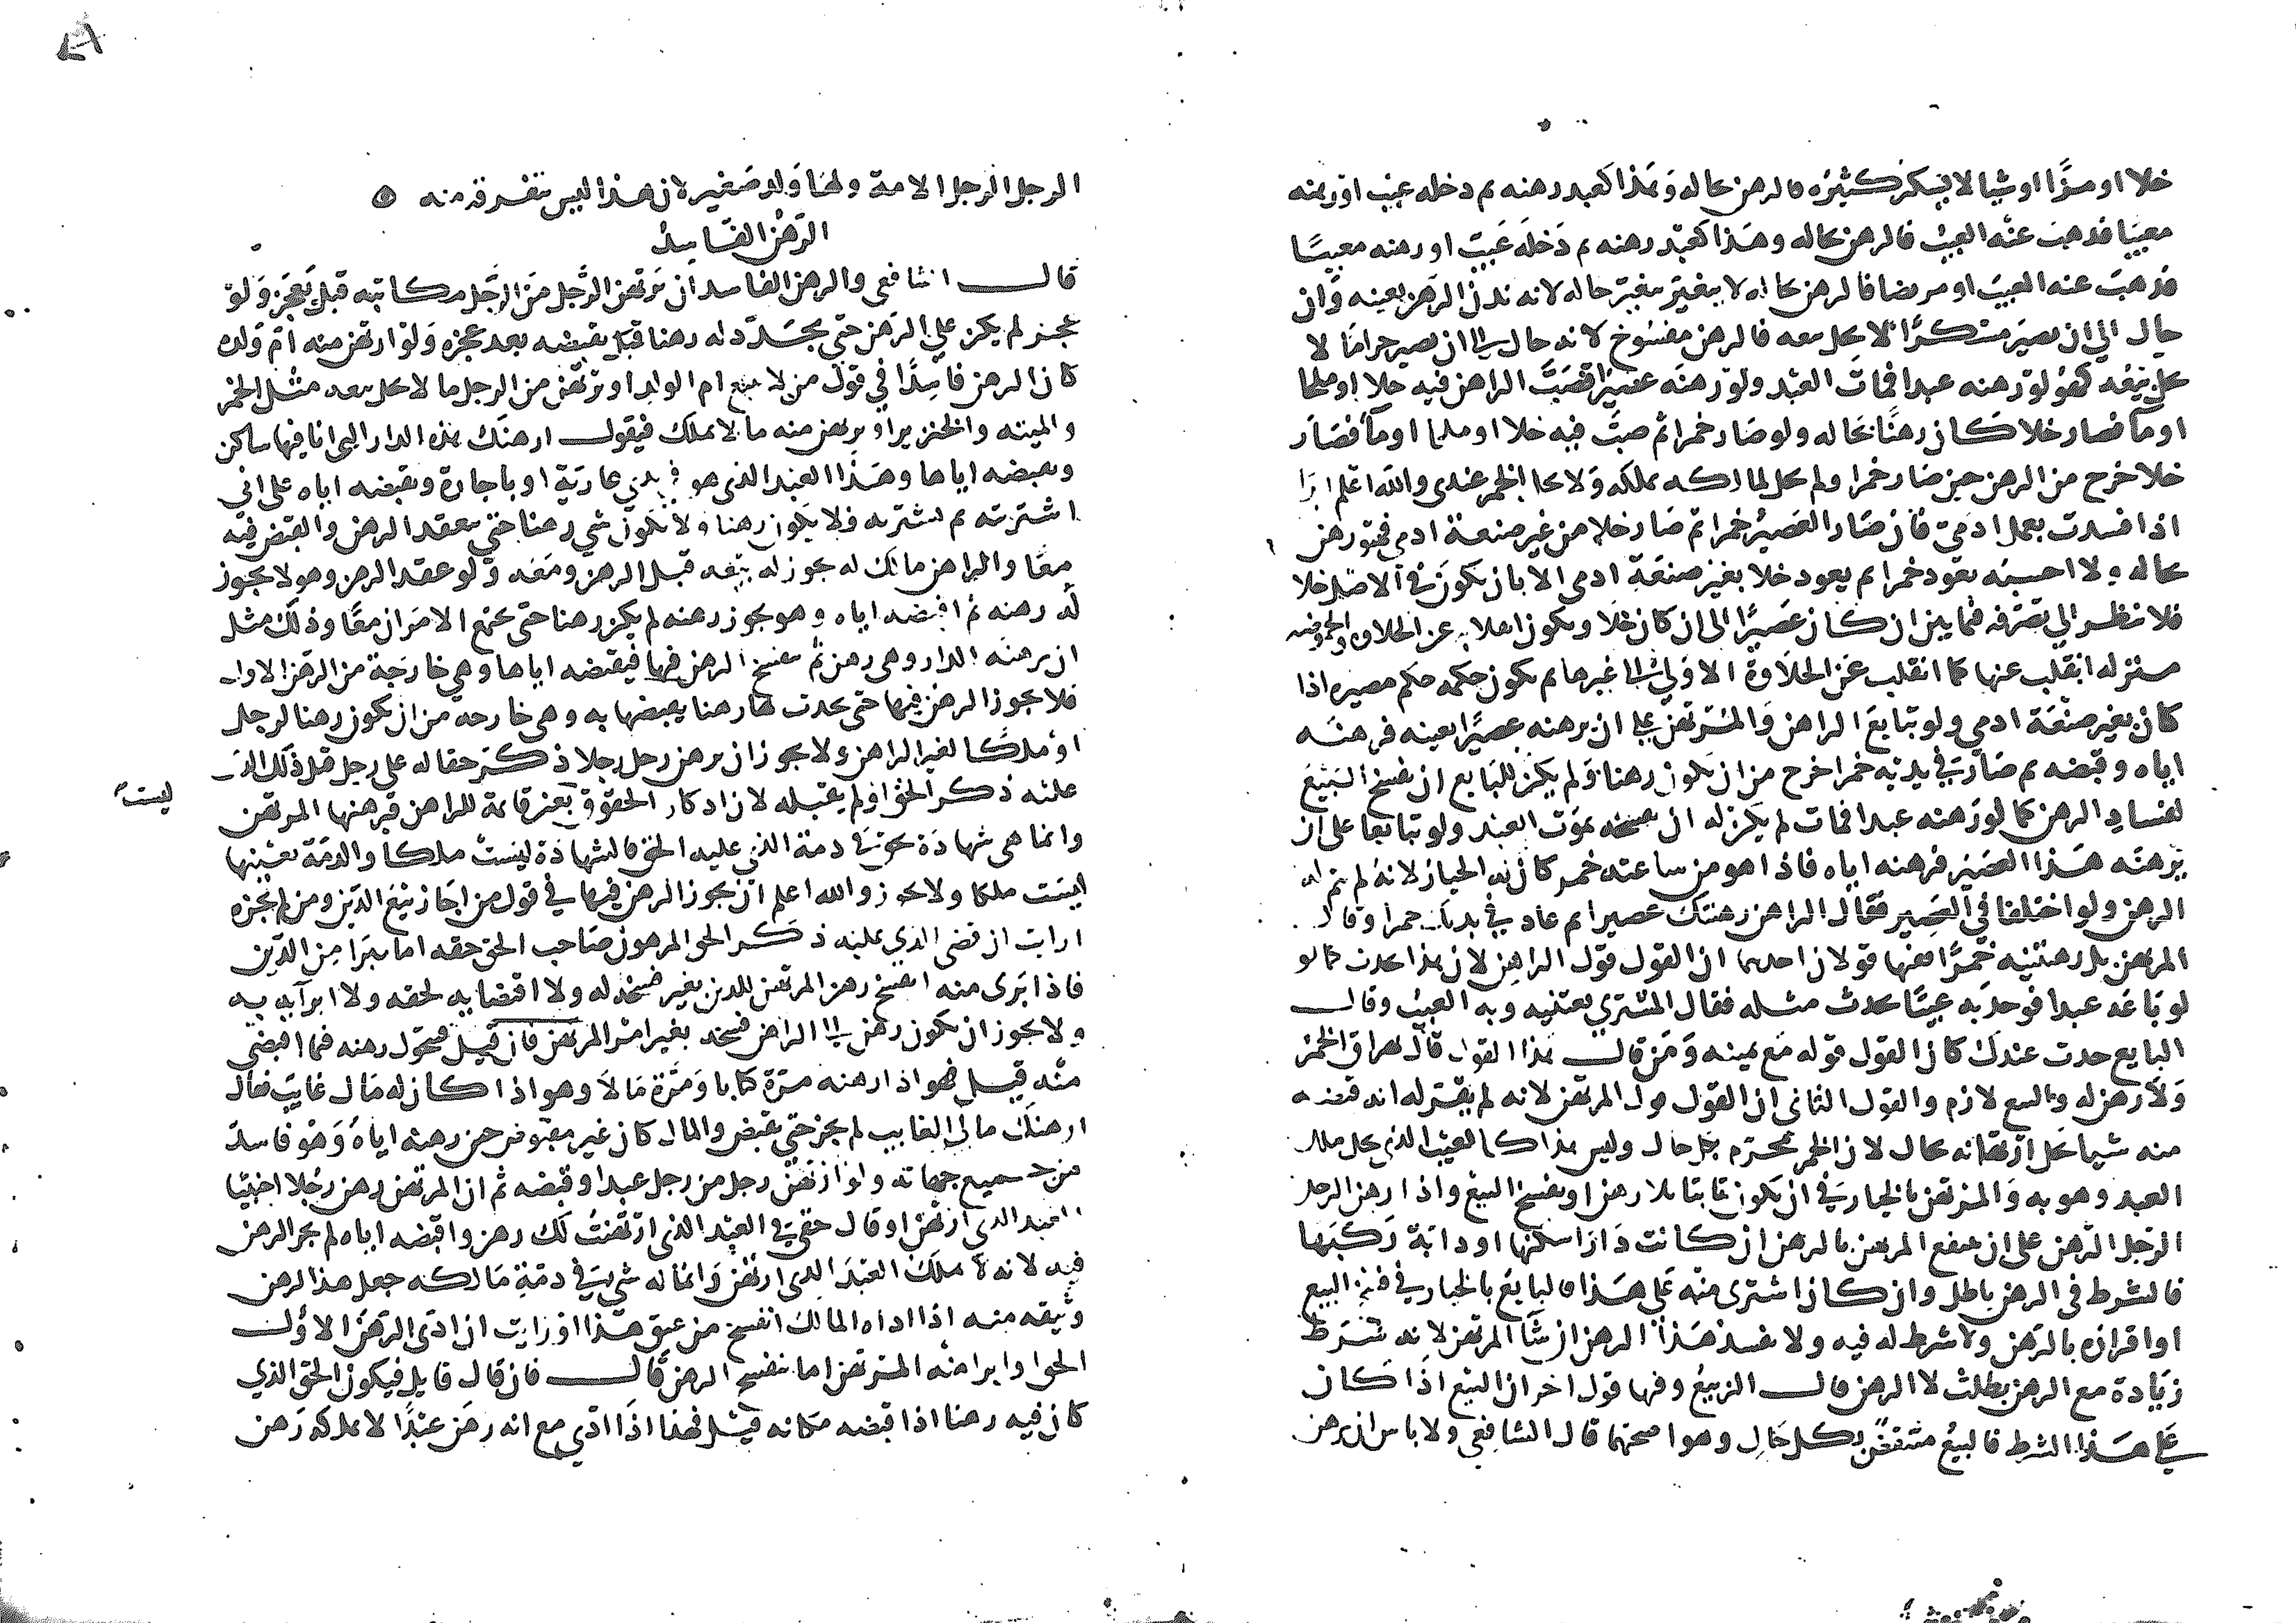 خلا او مزّا او شيا لا يسكر كثيره فالرهن بحاله وهذا كعبد رهنه ثم دخله عيب او رهنه
معيبا فذهب عنه العيب فالرهن بحاله وهذا كعبد رهنه ثم دخله عيب او رهنه معيبًا
فذهب عنه العيب او مريضا فالرهن بحاله لا يتغير بتغير حاله لانه بدن الرهن بعينه وان
حال الى ان يصير مسكرًا لا يحل بيعه فالرهن مفسوخ لانه حال الى ان يصير حرامًا لا
يحل بيعه كهو لو رهنه عبدا فمات العبد ولو رهنه عصيرا فصبّ الراهن فيه خلا او ملحا
او ما فصار خلا كان رهنًا بحاله ولو صار خمرا ثم صبّ فيه خلا او ملحا او ما فصار
خلا خرج من الرهن حين صار خمرا ولم يحل لمالكه تملكه ولا تحل الخمر عندي والله اعلم ابدا
اذا فسدت بعمل ادمي فان صار العصير خمرا ثم صار خلا من غير صنعة ادمي فهو رهن
بحاله ولا احسبه يعود خمرا ثم يعود خلا بغير صنعة ادمي الا بان يكون في الاصل خلا
فلا ينظر الى تصرفه فيما بين ان كان عصيرًا الى ان كان خلا ويكون انقلابه عن الحلاوة والحموضة
منزلة انقلب عنها كما انقلب عن الحلاوة الاولى الى غيرها ثم يكون حكمه حكم مصيره اذا
كان بغير صنعة ادمي ولو تبايعا الراهن والمرتهن على ان يرهنه عصيرًا بعينه فرهنه
اياه وقبضه ثم صار في يديه خمرا خرج من ان يكون رهنا ولم يكن للبايع ان يفسخ البيع
لفساد الرهن كما لو رهنه عبدا فمات لم يكن له ان يفسخه بموت العبد ولو تبايعا على ان
يرهنه هذا العصير فرهنه اياه فاذا هو من ساعته خمر كان له الخيار لانه لم يتم له
الرهن ولو اختلفا في العصير فقال الراهن رهنتك عصيرا ثم عاد في يديك خمرا وقال
المرتهن بل رهنتنيه خمرًا ففيها قولان احدهما ان القول قول الراهن لان هذا يحدث كما لو
لو باعه عبدا فوجد به عيبًا يحدث مثله فقال المشتري بعتنيه وبه العيب وقال
البايع حدث عندك كان القول قوله مع يمينه ومن قال هذا القول قال يهراق الخمر
ولا رهن له والبيع لازم والقول الثاني ان القول قول المرتهن لانه لم يقر له انه قبض
منه شيا يحل ارتهانه بحال لان الخمر محرم بكل حال وليس هذا كالعيب الذي يحل ملك
العبد وهو به والمرتهن بالخيار في ان يكون ثابتا بلا رهن او يفسخ البيع واذا رهن الرجل
الرجل الرهن على ان ينتفع المرتهن بالرهن ان كانت دارًا سكنها او دابة ركبها
فالشرط في الرهن باطل وان كان اشترى منه على هذا فالبايع بالخيار في فسخ البيع
او اقراره بالرهن ولا شرط له فيه ولا يفسد هذا الرهن ان شا المرتهن لانه شرط
زيادة مع الرهن بطلت لا الرهن قال الربيع وفيها قول اخر ان البيع اذا كان
على هذا الشرط فالبيع منتقض بكل حال وهو اصحهما قال الشافعي ولا باس ان يرهن
الرجل الرجل الامة ولها ولد صغير لان هذا ليس بتفرقة منه
الرهن الفاسد
قال الشافعي والرهن الفاسد ان يرتهن الرجل من الرجل مكاتبه قبل يعجز ولو
عجز لم يكن على الرهن حتى يجدد له رهنا قبل يقبضه بعد عجزه ولو ارتهن منه ام ولد
كان الرهن فاسدًا في قول من لا يبيع ام الولد او يرتهن من الرجل ما لا يحل بيعه مثل الخمر
والميته والخنزير او يرتهن منه ما لا يملك فيقول ارهنك هذه الدار التي انا فيها ساكن
ويقبضه اياها وهذا العبد الذي هو في يدي عارية او باجارة ويقبضه اياه على اني
اشتريته ثم يشتريه فلا يكون رهنا ولا يكون شي رهنا حتى ينعقد الرهن والقبض فيه
معًا والراهن مالك له يجوز له بيعه قبل الرهن ومعه ولو عقد الرهن وهو لا يجوز
له رهنه ثم اقبضه اياه وهو يجوز رهنه لم يكن رهنا حتى يجتمع الامران معًا وذلك مثل
ان يرهنه الدار وهي رهن ثم ينفسخ الرهن فيها فيقبضه اياها وهي خارجة من الرهن الاول
فلا يجوز الرهن فيها حتى يحدث لها رهنا يقبضها به وهي خارجه من ان يكون رهنا لرجل
او ملكًا لغير الراهن ولا يجوز ان يرهن رجل رجلا ذكر حق له على رجل قبل ذلك الذي
عليه ذكر الحق او لم يقبله لان اذكار الحقوق بعين قايمة للراهن فيرهنها المرتهن
ليست
وانما هي شهادة بحق في ذمة الذي عليه الحق فالشهادة ليست ملكا والذمة بعينها
ليست ملكا ولا يجوز والله اعلم ان يجوز الرهن فيها في قول من اجاز بيع الدين ومن لم يجزه
ارايت ان قضى الذي عليه ذكر الحق المرهون صاحب الحق حقه اما يبرا من الدين
فاذا برى منه انفسخ رهن المرتهن للدين بغير فسخه له ولا اقتضايه لحقه ولا ابرآيه به
ولا يجوز ان يكون رهن الى الراهن فسخه بغير امر المرتهن فان قيل فيحول رهنه فيما اقتضى
منه قيل فهو اذا رهنه مرة كتابا ومرة مالا وهو اذا كان له مال غايب فقال
ارهنك مالي الغايب لم يجز حتى يقبض والمال كان غير مقبوض حين رهنه اياه وهو فاسد
من جميع جهاته ولو ارتهن رجل من رجل عبدا وقبضه ثم ان المرتهن رهن رجلا اجنبيا
العبد الذي ارتهن او قال حقي في العبد الذي ارتهنت لك رهن واقبضه اياه لم يجز الرهن
فيه لانه لا يملك العبد الذي ارتهن وانما له شي في ذمة مالكه جعل هذا الرهن
وثيقه منه اذا اداه المالك انفسخ من عنق هذا او رايت ان ادى الرهن الاول
الحق او ابراه منه المرتهن اما ينفسخ الرهن قال فان قال قايل فيكون الحق الذي
كان فيه رهنا اذا قبضه مكانه قيل فهذا اذًا ادّي مع انه رهن عبدًا لا يملكه رهن